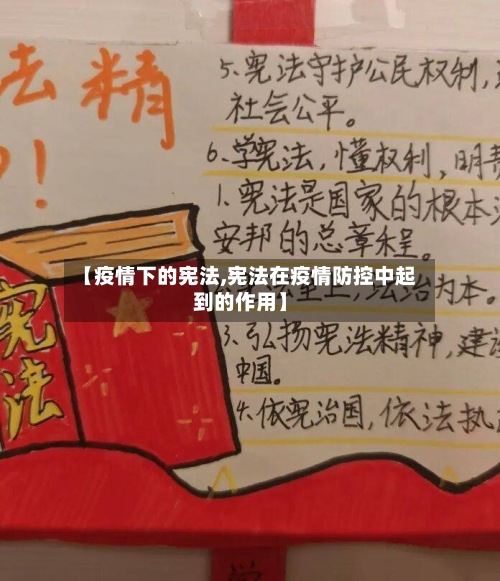 法精
!
5、宪法守护公民权利,
社会公平。
6、学宪法,懂权利,明责
1、宪法是国家的根本
安邦的总章程。
【疫情下的宪法,宪法在疫情防控中起
到的作用】
至上,法治为本。
3、弘扬宪法精神,建设
中国。
4、依宪治国,依法执
宪法